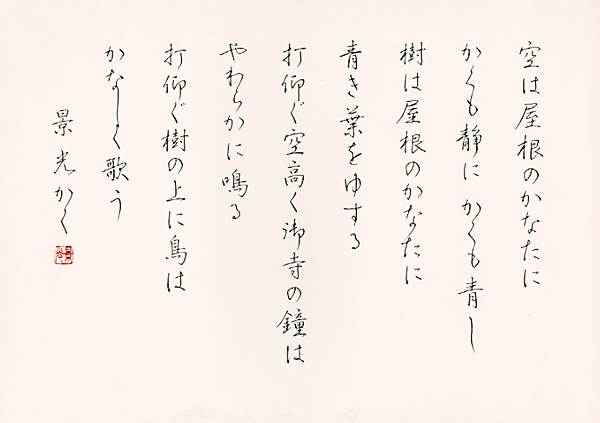 空は屋根のかなたに
かくも静に かくも青し
樹は屋根のかなたに
青き葉をゆする
打仰ぐ空高く御寺の鐘は
やわらかに鳴る
打仰ぐ樹の上に鳥は
かなしく歌う
景光かく